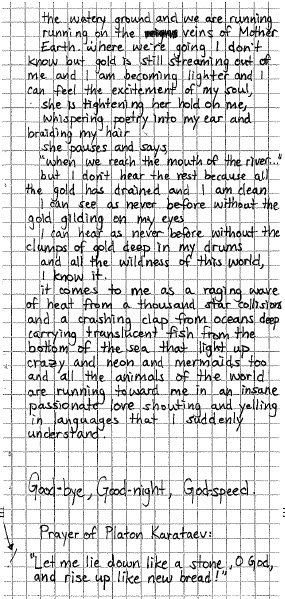 the watery ground and we are running
running on the veins of Mother
Earth. Where we're going I don't
know but gold is still streaming out of
me and I am becoming lighter and I
can feel the excitement of my soul,
she is tightening her hold on me,
whispering poetry into my ear and
braiding my hair
she pauses and says,
"when we reach the mouth of the river..."
but I don't hear the rest because all
the gold has drained and I am clean
I can see as never before without the
gold gilding on my eyes
I can hear as never before without the
clumps of gold deep in my drums
and all the wildness of this world,
I know it.
it comes to me as a raging wave
of heat from a thousand star collisions
and a crashing clap from oceans deep
carrying translucent fish from the
bottom of the sea that light up
crazy and neon and mermaids too
and all the animals of the world
are running toward me in an insane
passionate love shouting and yelling
in languages that I suddenly
understand.
Good-bye, Good-night, God-speed.
Prayer of Platon Karataev:
"Let me lie down like a stone, O God,
and rise up like new bread!"